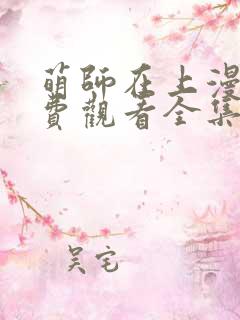 萌師在上漫
費觀看全集
吴宅